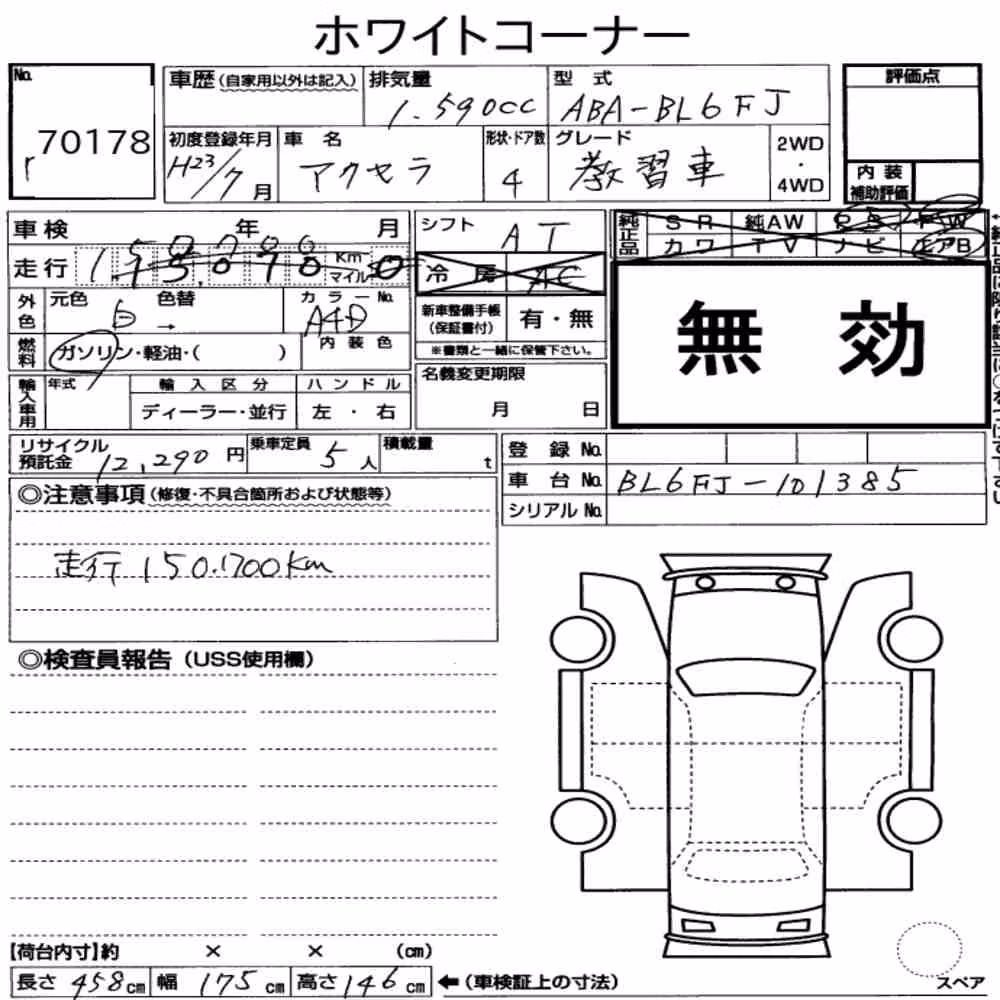 ホワイトコーナー
No. 70178
車歴(自家用以外は記入) 排気量 1.590cc 型式 ABA-BL6FJ
初度登録年月 H23/7月 車名 アクセラ 形状・ドア数 4 グレード 教習車 2WD・4WD
評価点
内装補助評価
車検 年 月
走行 Km マイル
シフト AT
冷房 AC
純正品 SR 純AW PS PW
カワ TV ナビ エアB
無効
外色 元色 白 色替 → カラーNo. A4D
内装色
燃料 ガソリン・軽油・( )
新車整備手帳(保証書付) 有・無
※書類と一緒に保管下さい。
輸入車用 年式 輸入区分 ディーラー・並行 ハンドル 左・右
名義変更期限 月 日
リサイクル預託金 12,290円 乗車定員 5人 積載量 t
登録No.
車台No. BL6FJ-101385
シリアルNo.
◎注意事項(修復・不具合箇所および状態等)
走行 150.1700km
◎検査員報告(USS使用欄)
【荷台内寸】約 × × (cm)
長さ 458cm 幅 175cm 高さ 146cm ←(車検証上の寸法)
スペア